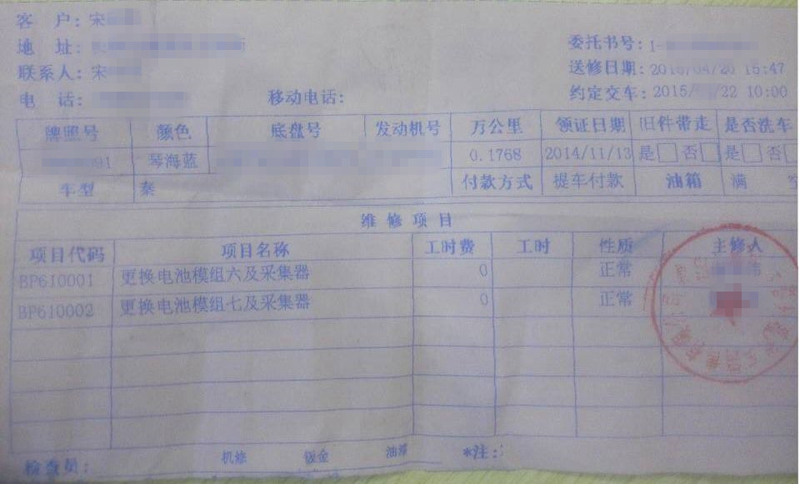 客　户：宋
地　址：
委托书号：1-
联系人：宋
送修日期：2016/04/20 15:47
电　话：
移动电话：
约定交车：2015/ /22 10:00
牌照号 颜色 底盘号 发动机号 万公里 领证日期 旧件带走 是否洗车
91 琴海蓝 0.1768 2014/11/13 是□否□ 是□否□
车型 秦 付款方式 提车付款 油箱 满 空
维修项目
项目代码 项目名称 工时费 工时 性质 主修人
BP610001 更换电池模组六及采集器 0 正常
BP610002 更换电池模组七及采集器 0 正常
检查员： 机修 钣金 油漆 *注：